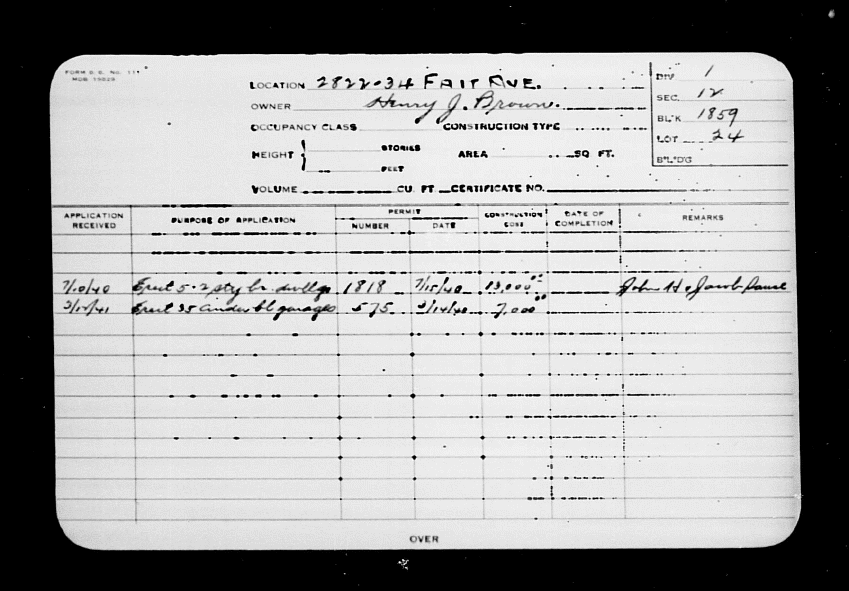 FORM B.E. No. 11
MDB 15029
LOCATION 2822-34 FAIR AVE.
OWNER Henry J. Brown.
OCCUPANCY CLASS CONSTRUCTION TYPE
HEIGHT { STORIES
FEET
AREA SQ FT.
VOLUME CU. FT CERTIFICATE NO.
DIV 1
SEC. 12
BL'K 1859
LOT 24
B'L'D'G
APPLICATION RECEIVED PURPOSE OF APPLICATION PERMIT NUMBER DATE CONSTRUCTION COST DATE OF COMPLETION REMARKS
7/10/40 Erect 5-2 sty br. dwllgs 1818 7/15/40 13,000.00 John H. Jacob
Erect 35 cinder bl garages 575 7,000.00
OVER